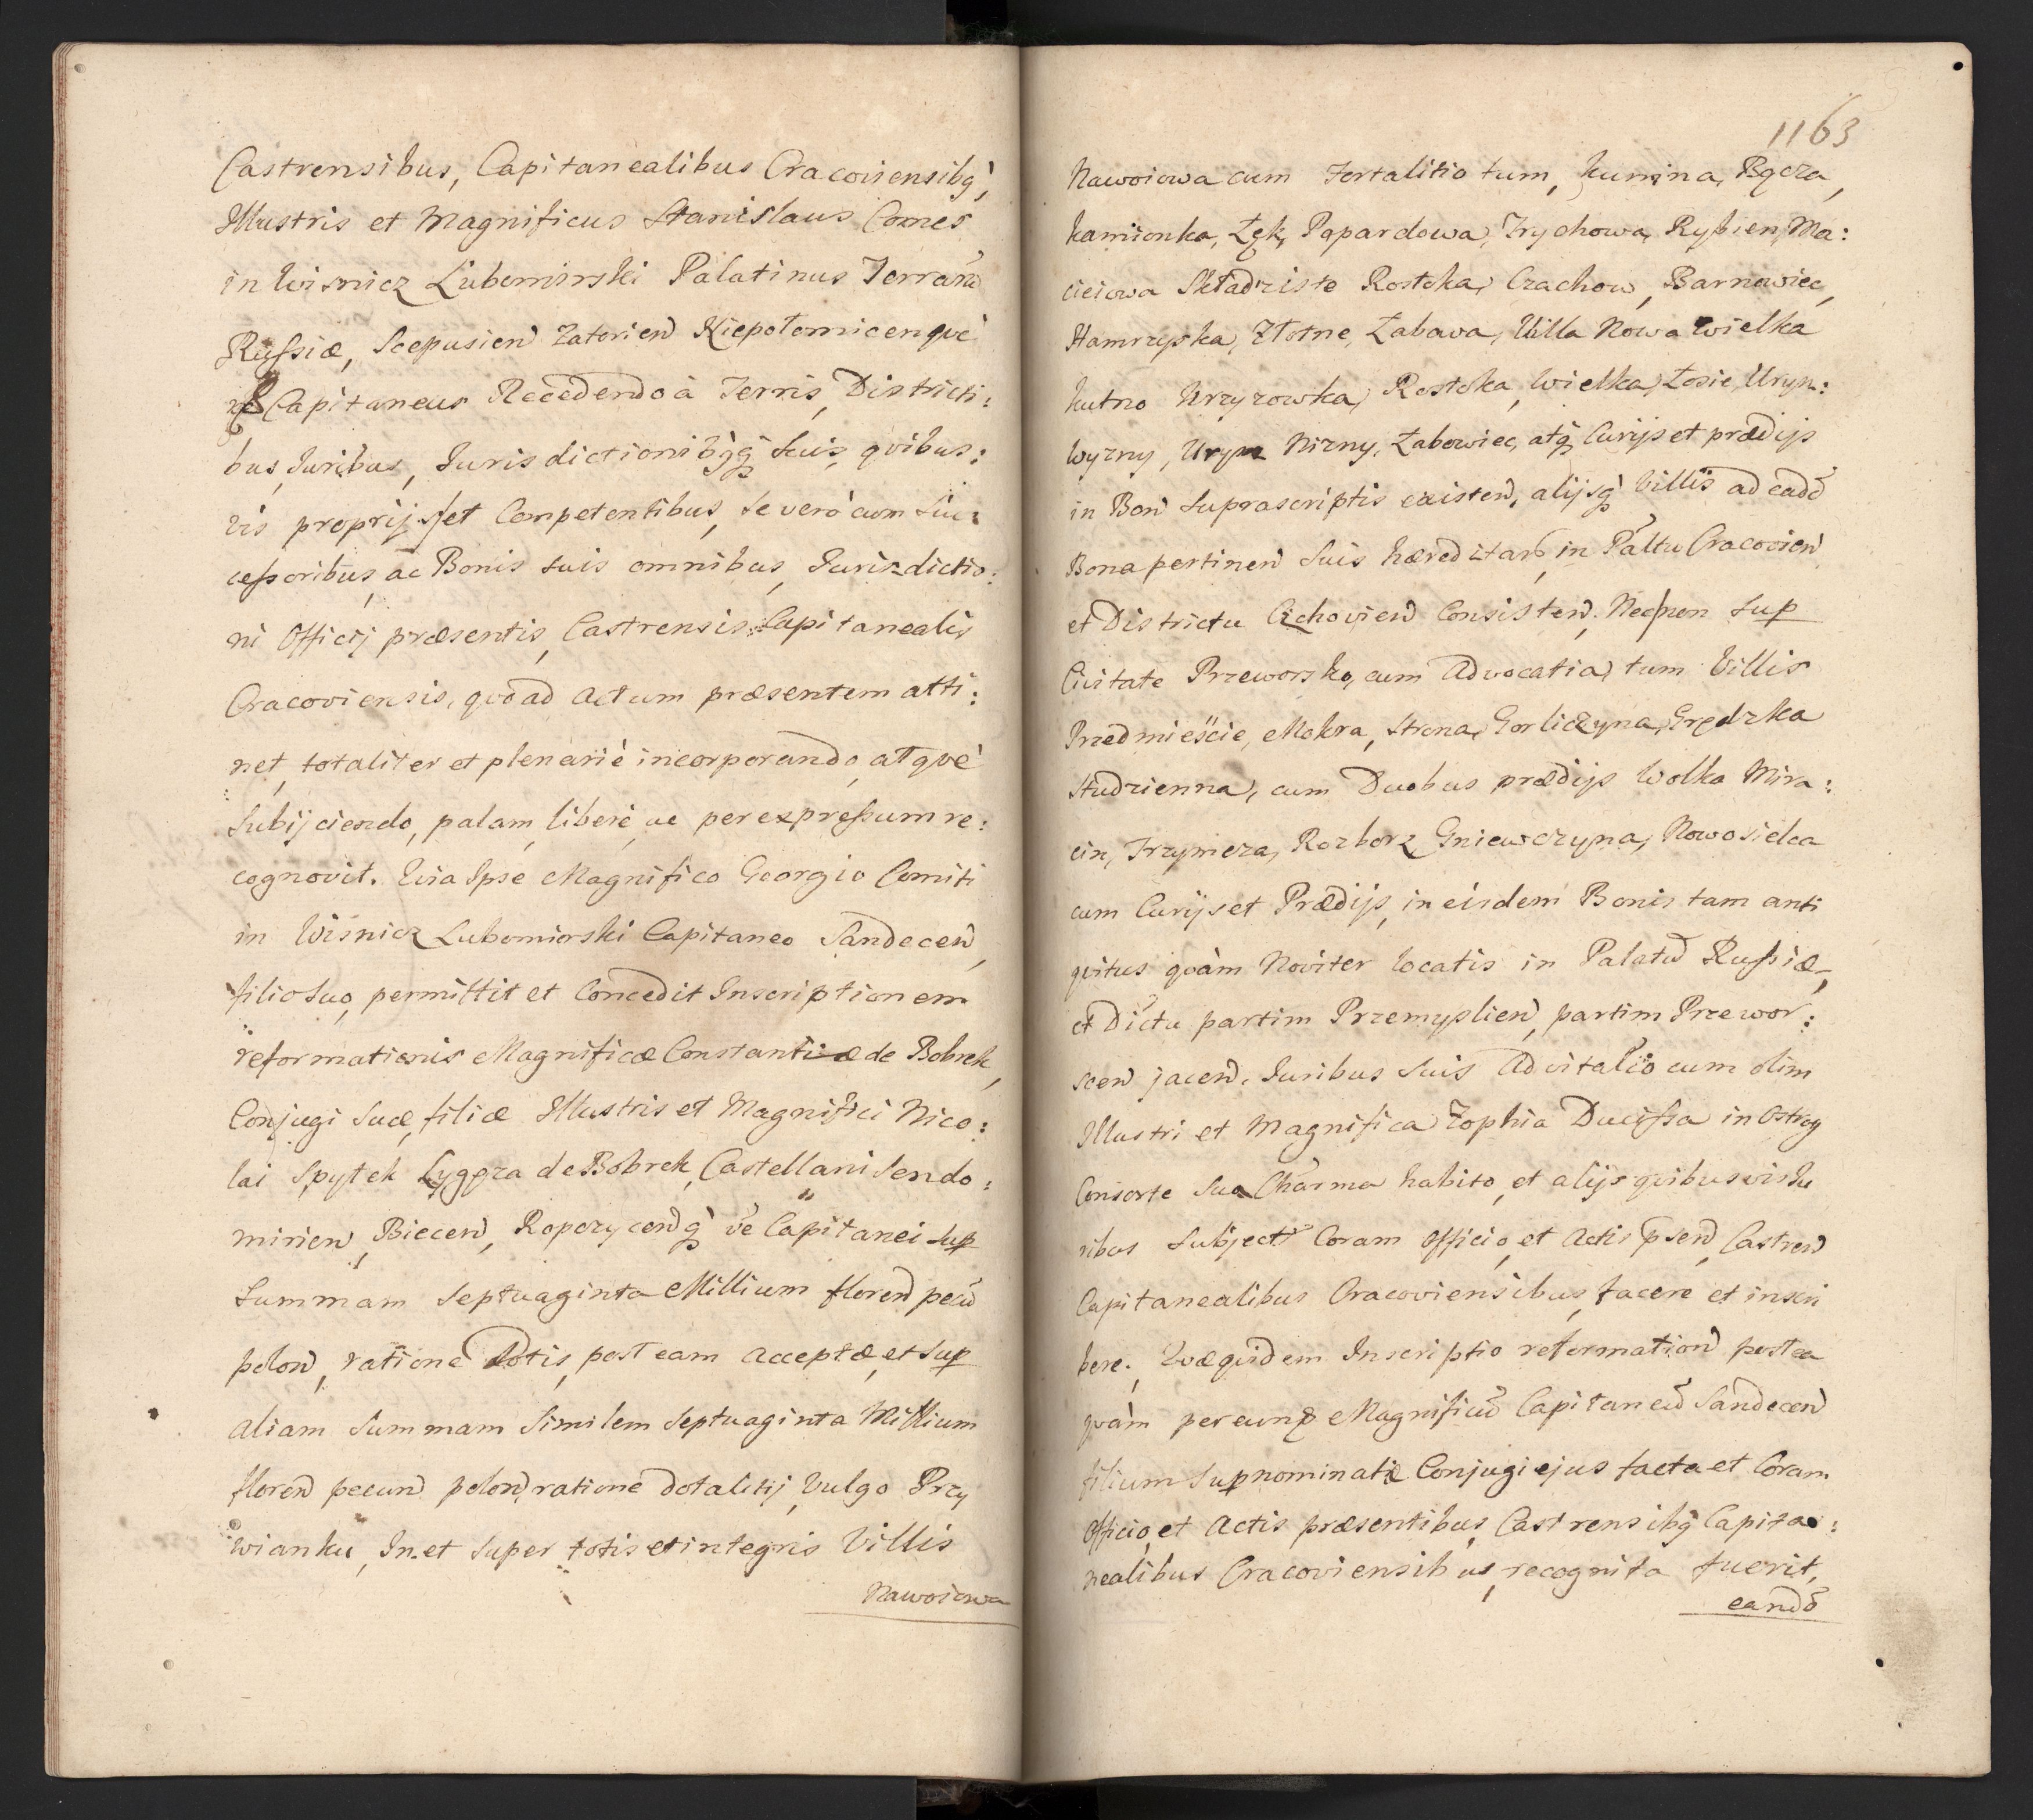 Castrensibus, Capitanealibus Cracoviensibq,
Illustris et Magnificus Stanislaus Comes
in Wisnicz Lubomirski Palatinus Terrarū
Russiæ, Scepusien Zatorien Niepołomicenque
Capitaneus Recedendo à Terris, Districti:
bus, Juribus, Jurisdictionibqq Suis, quibus:
vis proprijs, et Competentibus, se verò cum Suc:
cessoribus, ac Bonis suis omnibus, Jurisdictio:
ni Officij præsentis, Castrensis Capitanealis
Cracoviensis, quoad actum præsentem atti:
net, totaliter et plenariè incorporando, atquè
Subijciendo, palam, liberè, ac per expressum re:
cognovit. Quia Ipse Magnifico Georgio Comiti
in Wisnicz Lubomirski Capitaneo Sandecen,
filio Suo, permittit et Concedit Inscriptionem
reformationis Magnificæ Constantiæ de Bobrek,
Conjugi Suæ, filiæ Illustris et Magnifici Nico:
lai Spytek Lygęza de Bobrek, Castellani Sendo:
mirien, Biecen, Ropczycenq ve Capitanei Sup
Summam Septuaginta Millium floren pecū
polon, ratione Dotis, post eam acceptæ, et Sup
aliam Summam Similem Septuaginta Millium
floren pecun polon, ratione dotalitij, vulgo Przy
wianku, In et Super totis et integris Villis
Nawoiowa
1163
Nawoiowa cum Fortalitio tum, Kunina, Bącza,
Kamionka, Łęk, Popardowa, Frychowa, Rybien, Ma:
cieiowa Składziste Rostoka, Czachow, Barnowiec,
Hamrzyska, Złotne, Łabawa, Villa Nowa Wielka
Kutno Krzyzowka, Rostoka, Wielka, Łosie, Uryn:
Wyzny, Uryn Nizny, Łabowiec, atq Curijs et prædijs
in Bon Suprascriptis existen, alijsq Villis ad eadē
Bona pertinen Suis hæreditar, in Paltu Cracovien
et Districtu Czchovien Consisten. Necnon Sup
Civitate Przeworsko, cum Advocatia, tum Villis
Przedmieście, Mokra, Strona, Gorliczyna, Grędzka
Studzienna, cum Duobus prædijs Wolka Mira:
cin, Trzynicza, Rozborz, Gniewczyna, Nowosielca
cum Curijs et Prædijs, in eisdem Bonis tam anti
quitus quàm Noviter locatis in Palatu Russiæ,
et Dictu partim Przemyslien, partim Przewor:
scen jacen. Juribus Suis Advitalio cum olim
Illustri et Magnifica Zophia Ducissa in Ostrog
Consorte Sua Charma habito, et alijs quibusvis Ju
ribus Subject Coram Officio, et Actis psen, Castren
Capitanealibus Cracoviensibus, facere et inscri
bere. Quæquidem Inscriptio reformation postea
quàm per eund Magnificū Capitaneū Sandecen
filium Supnominatæ Conjugi ejus facta et Coram
Officio, et Actis præsentibus, Castrensibq Capita:
nealibus Cracoviensibus, recognita fuerit,
eandē